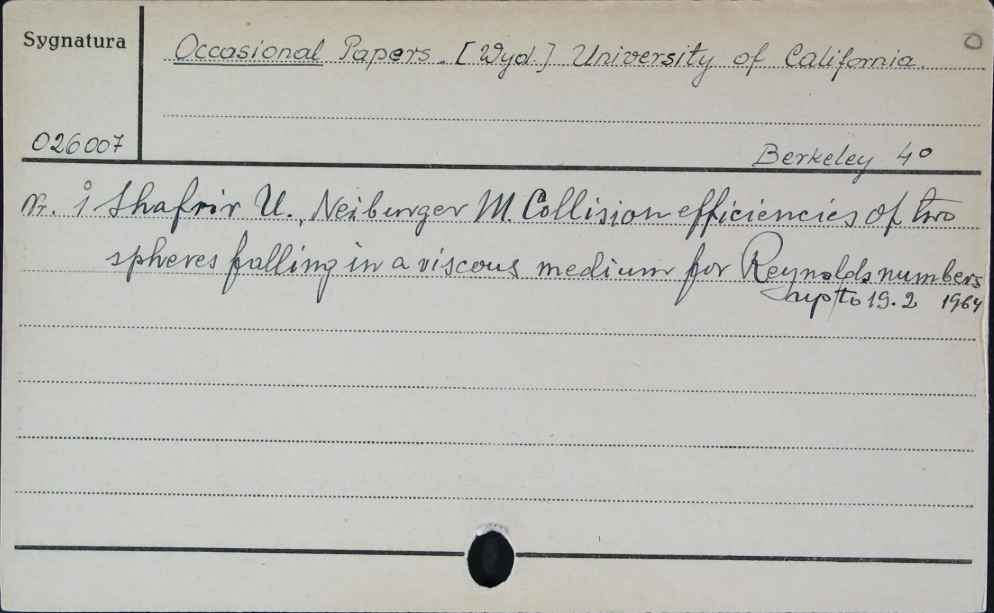 Sygnatura
Occasional Papers. [Wyd.] University of California. O
026007
Berkeley 4°
nr. 1 Shafrir U., Neiburger M. Collision efficiencies of two
spheres falling in a viscous medium for Reynolds numbers
up to 19.2 1964